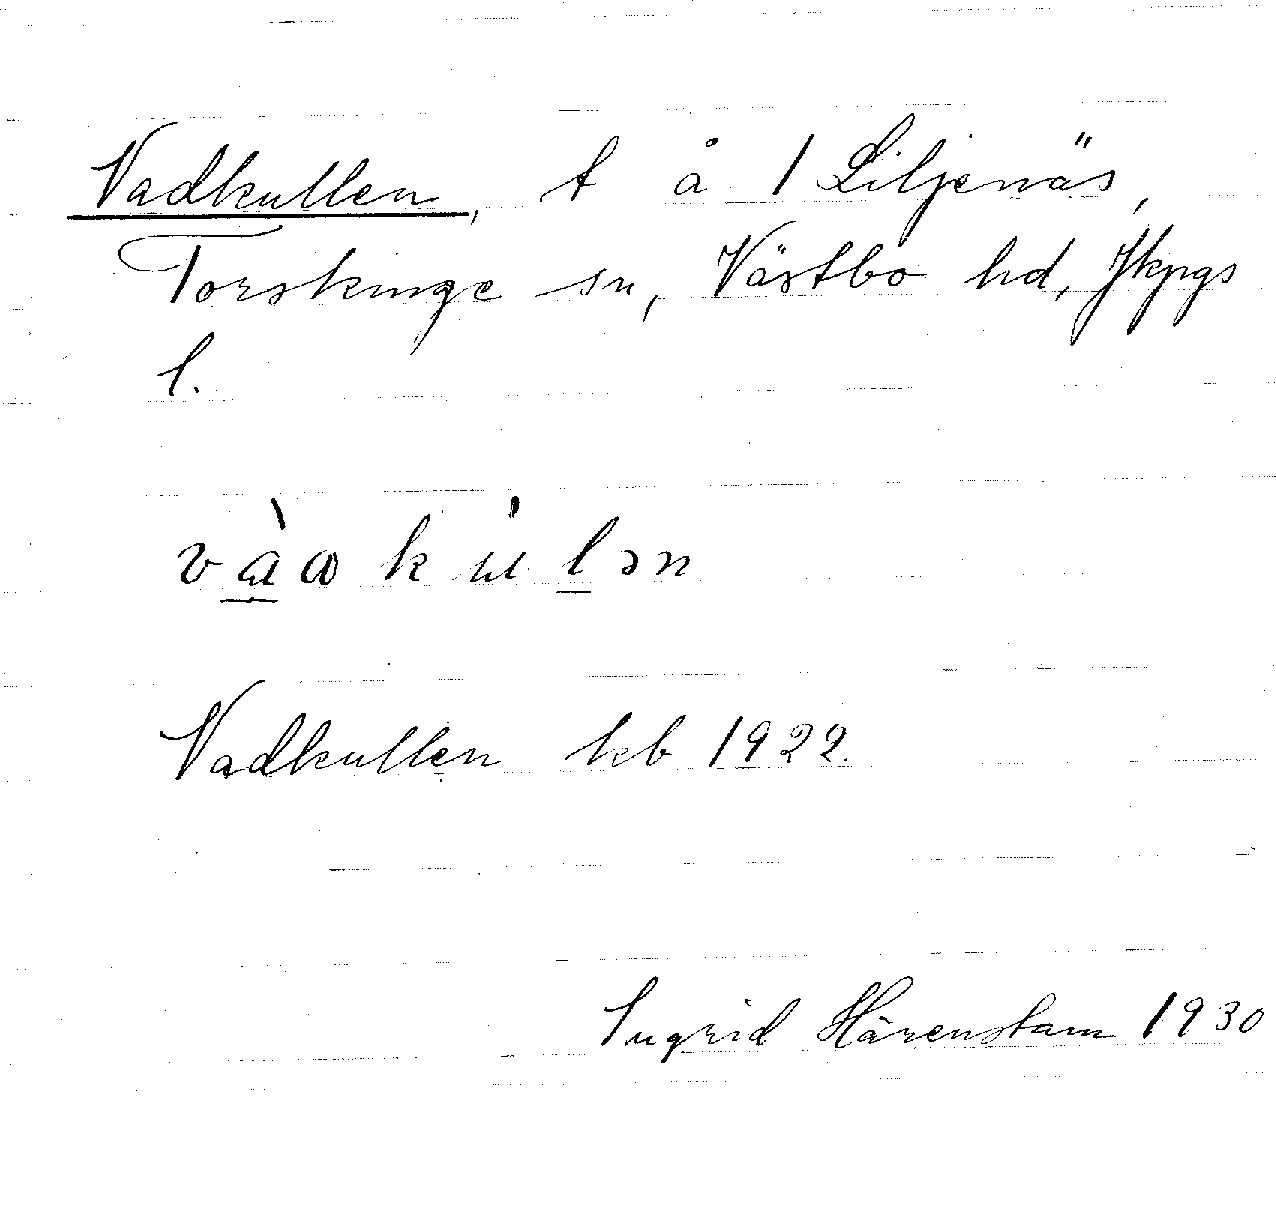 Vadkullen, t å 1 Liljenäs,
Torskinge sn, Västbo hd, Jkpgs
l.
Vadkullen kb 1922.
Ingrid Härenstam 1930